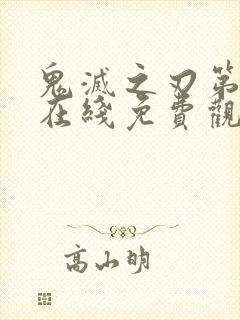 鬼滅之刃第
在綫免費觀
高山明